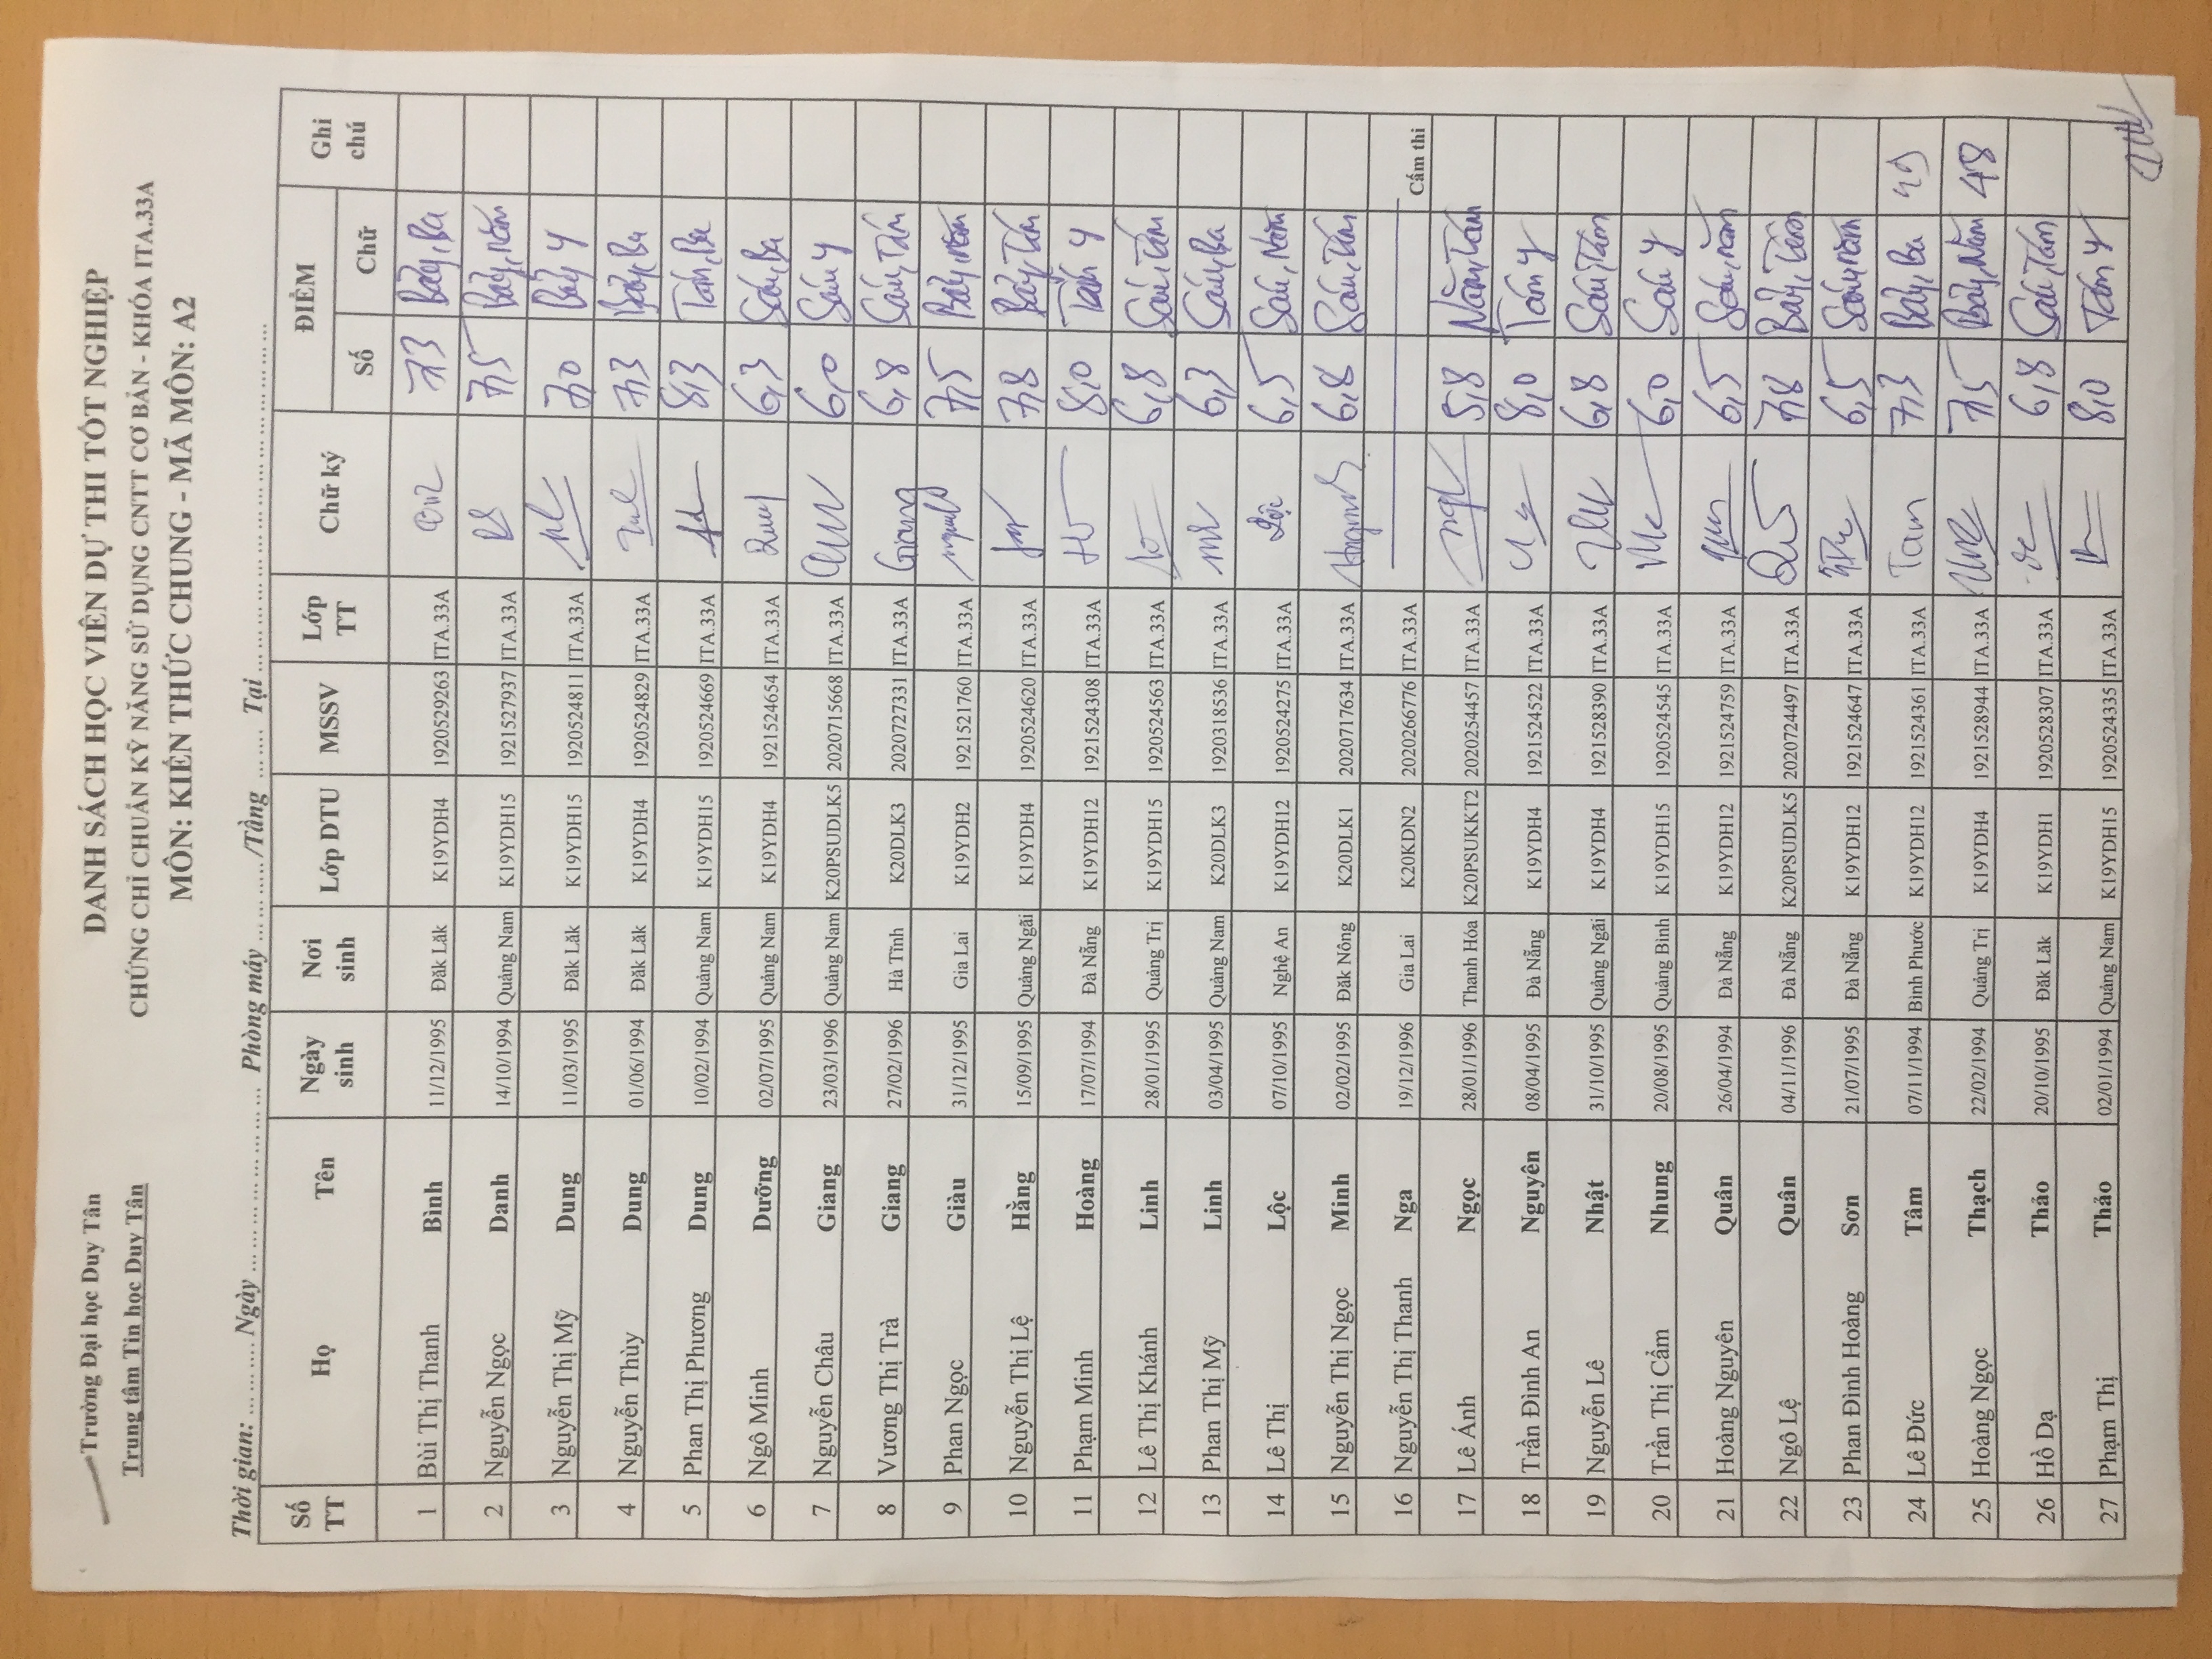 Trường Đại học Duy Tân
Trung tâm Tin học Duy Tân
DANH SÁCH HỌC VIÊN DỰ THI TỐT NGHIỆP
CHỨNG CHỈ CHUẨN KỸ NĂNG SỬ DỤNG CNTT CƠ BẢN - KHÓA ITA.33A
MÔN: KIẾN THỨC CHUNG - MÃ MÔN: A2
Thời gian: ......... Ngày ........................ Phòng máy ........../Tầng ...... Tại ..............................
Số TT Họ Tên Ngày sinh Nơi sinh Lớp DTU MSSV Lớp TT Chữ ký ĐIỂM Số Chữ Ghi chú
1 Bùi Thị Thanh Bình 11/12/1995 Đăk Lăk K19YDH4 1920529263 ITA.33A 7,3 Bảy, Ba
2 Nguyễn Ngọc Danh 14/10/1994 Quảng Nam K19YDH15 1921527937 ITA.33A 7,5 Bảy, Năm
3 Nguyễn Thị Mỹ Dung 11/03/1995 Đăk Lăk K19YDH15 1920524811 ITA.33A 7,0 Bảy y
4 Nguyễn Thùy Dung 01/06/1994 Đăk Lăk K19YDH4 1920524829 ITA.33A 7,3 Bảy, Ba
5 Phan Thị Phương Dung 10/02/1994 Quảng Nam K19YDH15 1920524669 ITA.33A 8,3 Tám, Ba
6 Ngô Minh Dưỡng 02/07/1995 Quảng Nam K19YDH4 1921524654 ITA.33A 6,3 Sáu, Ba
7 Nguyễn Châu Giang 23/03/1996 Quảng Nam K20PSUDLK5 2020715668 ITA.33A 6,0 Sáu y
8 Vương Thị Trà Giang 27/02/1996 Hà Tĩnh K20DLK3 2020727331 ITA.33A Giang 6,8 Sáu, Tám
9 Phan Ngọc Giàu 31/12/1995 Gia Lai K19YDH2 1921521760 ITA.33A 7,5 Bảy, Năm
10 Nguyễn Thị Lệ Hằng 15/09/1995 Quảng Ngãi K19YDH4 1920524620 ITA.33A 7,8 Bảy, Tám
11 Phạm Minh Hoàng 17/07/1994 Đà Nẵng K19YDH12 1921524308 ITA.33A 8,0 Tám y
12 Lê Thị Khánh Linh 28/01/1995 Quảng Trị K19YDH15 1920524563 ITA.33A 6,8 Sáu, Tám
13 Phan Thị Mỹ Linh 03/04/1995 Quảng Nam K20DLK3 1920318536 ITA.33A 6,3 Sáu, Ba
14 Lê Thị Lộc 07/10/1995 Nghệ An K19YDH12 1920524275 ITA.33A Lộc 6,5 Sáu, Năm
15 Nguyễn Thị Ngọc Minh 02/02/1995 Đăk Nông K20DLK1 2020717634 ITA.33A 6,8 Sáu, Tám
16 Nguyễn Thị Thanh Nga 19/12/1996 Gia Lai K20KDN2 2020266776 ITA.33A Cấm thi
17 Lê Ánh Ngọc 28/01/1996 Thanh Hóa K20PSUKKT2 2020254457 ITA.33A 5,8 Năm, Tám
18 Trần Đình An Nguyên 08/04/1995 Đà Nẵng K19YDH4 1921524522 ITA.33A 8,0 Tám y
19 Nguyễn Lê Nhật 31/10/1995 Quảng Ngãi K19YDH4 1921528390 ITA.33A 6,8 Sáu, Tám
20 Trần Thị Cẩm Nhung 20/08/1995 Quảng Bình K19YDH15 1920524545 ITA.33A 6,0 Sáu y
21 Hoàng Nguyên Quân 26/04/1994 Đà Nẵng K19YDH12 1921524759 ITA.33A 6,5 Sáu, Năm
22 Ngô Lệ Quân 04/11/1996 Đà Nẵng K20PSUDLK5 2020724497 ITA.33A 7,8 Bảy, Tám
23 Phan Đình Hoàng Sơn 21/07/1995 Đà Nẵng K19YDH12 1921524647 ITA.33A 6,5 Sáu, Năm
24 Lê Đức Tâm 07/11/1994 Bình Phước K19YDH12 1921524361 ITA.33A Tam 7,3 Bảy, Ba 49
25 Hoàng Ngọc Thạch 22/02/1994 Quảng Trị K19YDH4 1921528944 ITA.33A 7,5 Bảy, Năm 48
26 Hồ Dạ Thảo 20/10/1995 Đăk Lăk K19YDH1 1920528307 ITA.33A 6,8 Sáu, Tám
27 Phạm Thị Thảo 02/01/1994 Quảng Nam K19YDH15 1920524335 ITA.33A 8,0 Tám y